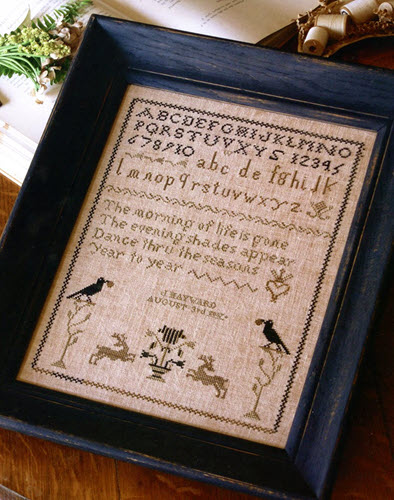 ABCDEFGHIJKLMNO
PQRSTUVWXYS 12345
678910 abc de fghijk
lmnopqrstuvwxyz
The morning of life is gone
The evening shades appear
Dance thru the seasons
Year to year
J HAYWARD
AUGUST 3rd